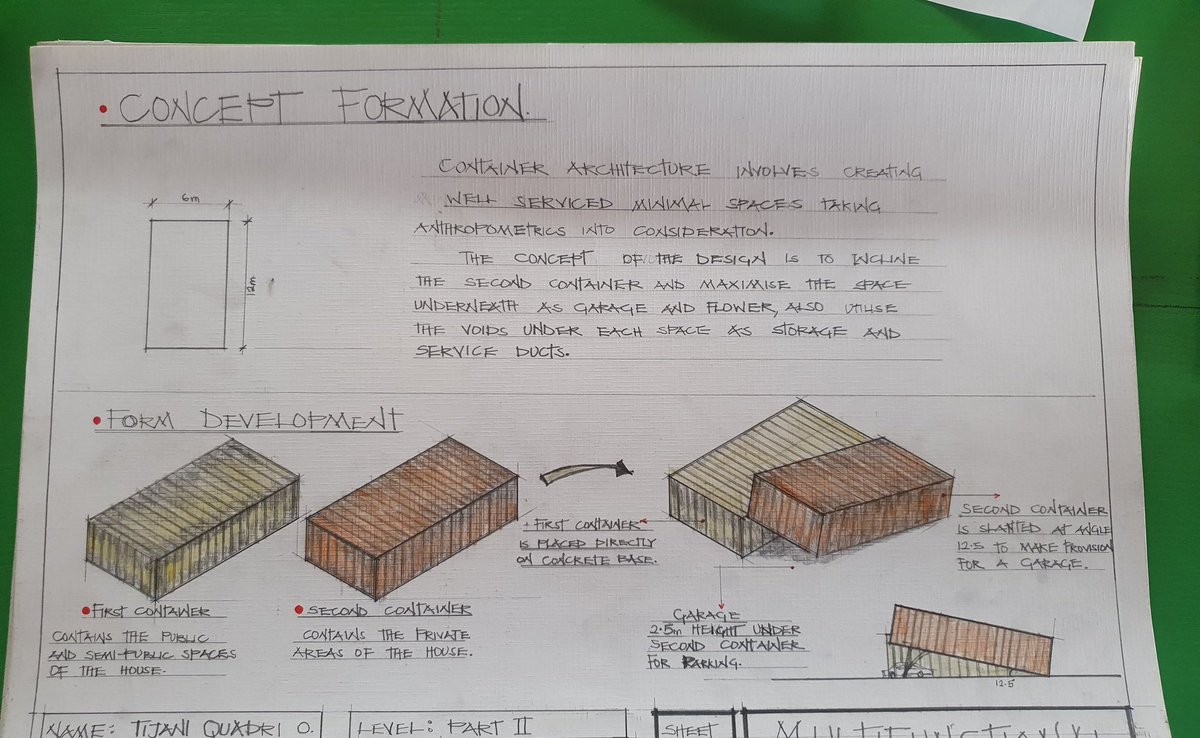 CONCEPT FORMATION.
6m
12m
CONTAINER ARCHITECTURE INVOLVES CREATING
WELL SERVICED MINIMAL SPACES TAKING
ANTHROPOMETRICS INTO CONSIDERATION.
THE CONCEPT OF THE DESIGN IS TO INCLINE
THE SECOND CONTAINER AND MAXIMISE THE SPACE
UNDERNEATH AS GARAGE AND FLOWER, ALSO UTILISE
THE VOIDS UNDER EACH SPACE AS STORAGE AND
SERVICE DUCTS.
FORM DEVELOPMENT
FIRST CONTAINER
CONTAINS THE PUBLIC
AND SEMI-PUBLIC SPACES
OF THE HOUSE.
SECOND CONTAINER
CONTAINS THE PRIVATE
AREAS OF THE HOUSE.
FIRST CONTAINER
IS PLACED DIRECTLY
ON CONCRETE BASE.
SECOND CONTAINER
IS SLANTED AT ANGLE
12.5 TO MAKE PROVISION
FOR A GARAGE.
GARAGE
2.5m HEIGHT UNDER
SECOND CONTAINER
FOR PARKING.
12.5
NAME: TIJANI QUADRI O.
LEVEL: PART II
SHEET